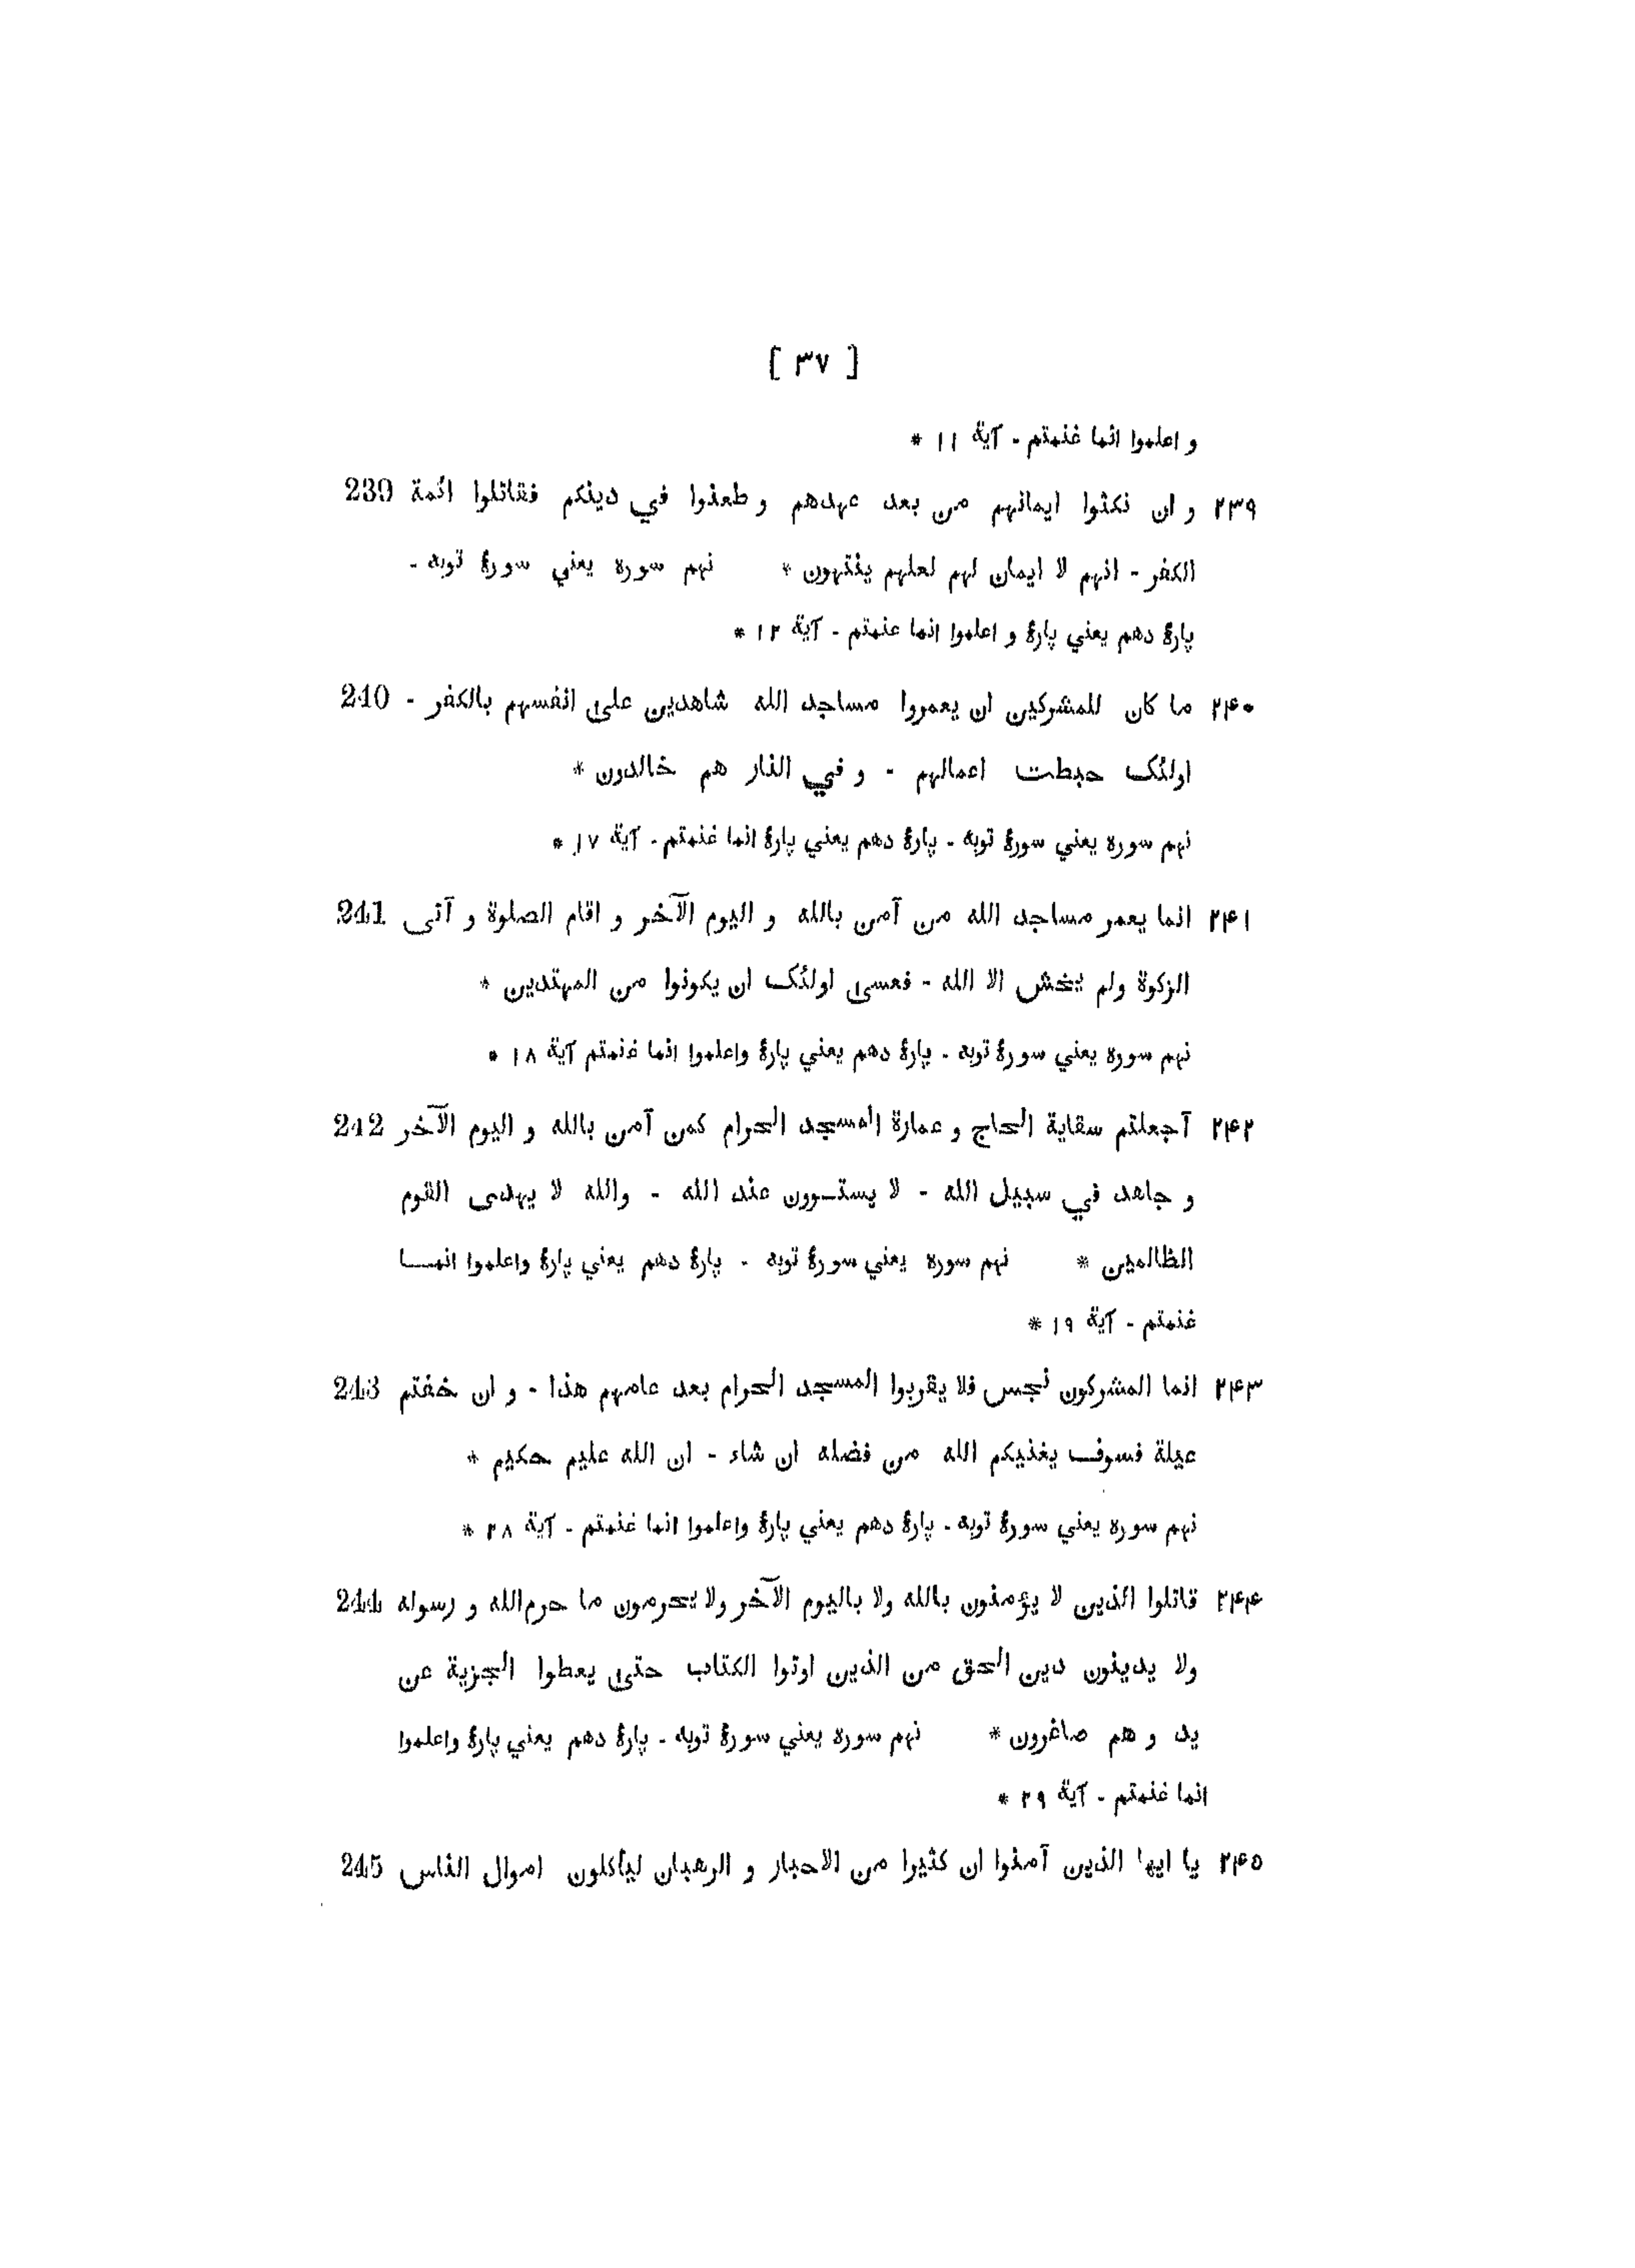 [ ٣٧ ]
و اعلموا انما غنمتم - آية ١١ *
٢٣٩ و ان نكثوا ايمانهم من بعد عهدهم و طعنوا في دينكم فقاتلوا ائمة 239
الكفر - انهم لا ايمان لهم لعلهم ينتهون * نهم سوره يعني سورۀ توبه -
پارۀ دهم يعني پارۀ و اعلموا انما عنمتم - آية ١٢ *
٢۴٠ ما كان للمشركين ان يعمروا مساجد الله شاهدين على انفسهم بالكفر - 240
اولئك حبطت اعمالهم - و في النار هم خالدون *
نهم سوره يعني سورۀ توبه - پارۀ دهم يعني پارۀ انما غنمتم - آية ١٧ *
٢۴١ انما يعمر مساجد الله من آمن بالله و اليوم الآخر و اقام الصلوة و آتى 241
الزكوة ولم يخش الا الله - فعسى اولئك ان يكونوا من المهتدين *
نهم سوره يعني سورۀ توبه - پارۀ دهم يعني پارۀ واعلموا انما غنمتم آية ١٨ *
٢۴٢ آجعلتم سقاية الحاج و عمارة المسجد الحرام كمن آمن بالله و اليوم الآخر 242
و جاهد في سبيل الله - لا يستــوون عند الله - والله لا يهدى القوم
الظالمين * نهم سوره يعني سورۀ توبه - پارۀ دهم يعني پارۀ واعلموا انمــا
غنمتم - آية ١٩ *
٢۴٣ انما المشركون نجس فلا يقربوا المسجد الحرام بعد عامهم هذا - و ان خفتم 243
عيلة فسوف يغنيكم الله من فضله ان شاء - ان الله عليم حكيم *
نهم سوره يعني سورۀ توبه - پارۀ دهم يعني پارۀ واعلموا انما غنمتم - آية ٢٨ *
٢۴۴ قاتلوا الذين لا يؤمنون بالله ولا باليوم الآخر ولا يحرمون ما حرم الله و رسوله 244
ولا يدينون دين الحق من الذين اوتوا الكتاب حتى يعطوا الجزية عن
يد و هم صاغرون * نهم سوره يعني سورۀ توبه - پارۀ دهم يعني پارۀ واعلموا
انما غنمتم - آية ٢٩ *
٢۴۵ يا ايها الذين آمنوا ان كثيرا من الاحبار و الرهبان لياكلون اموال الناس 245